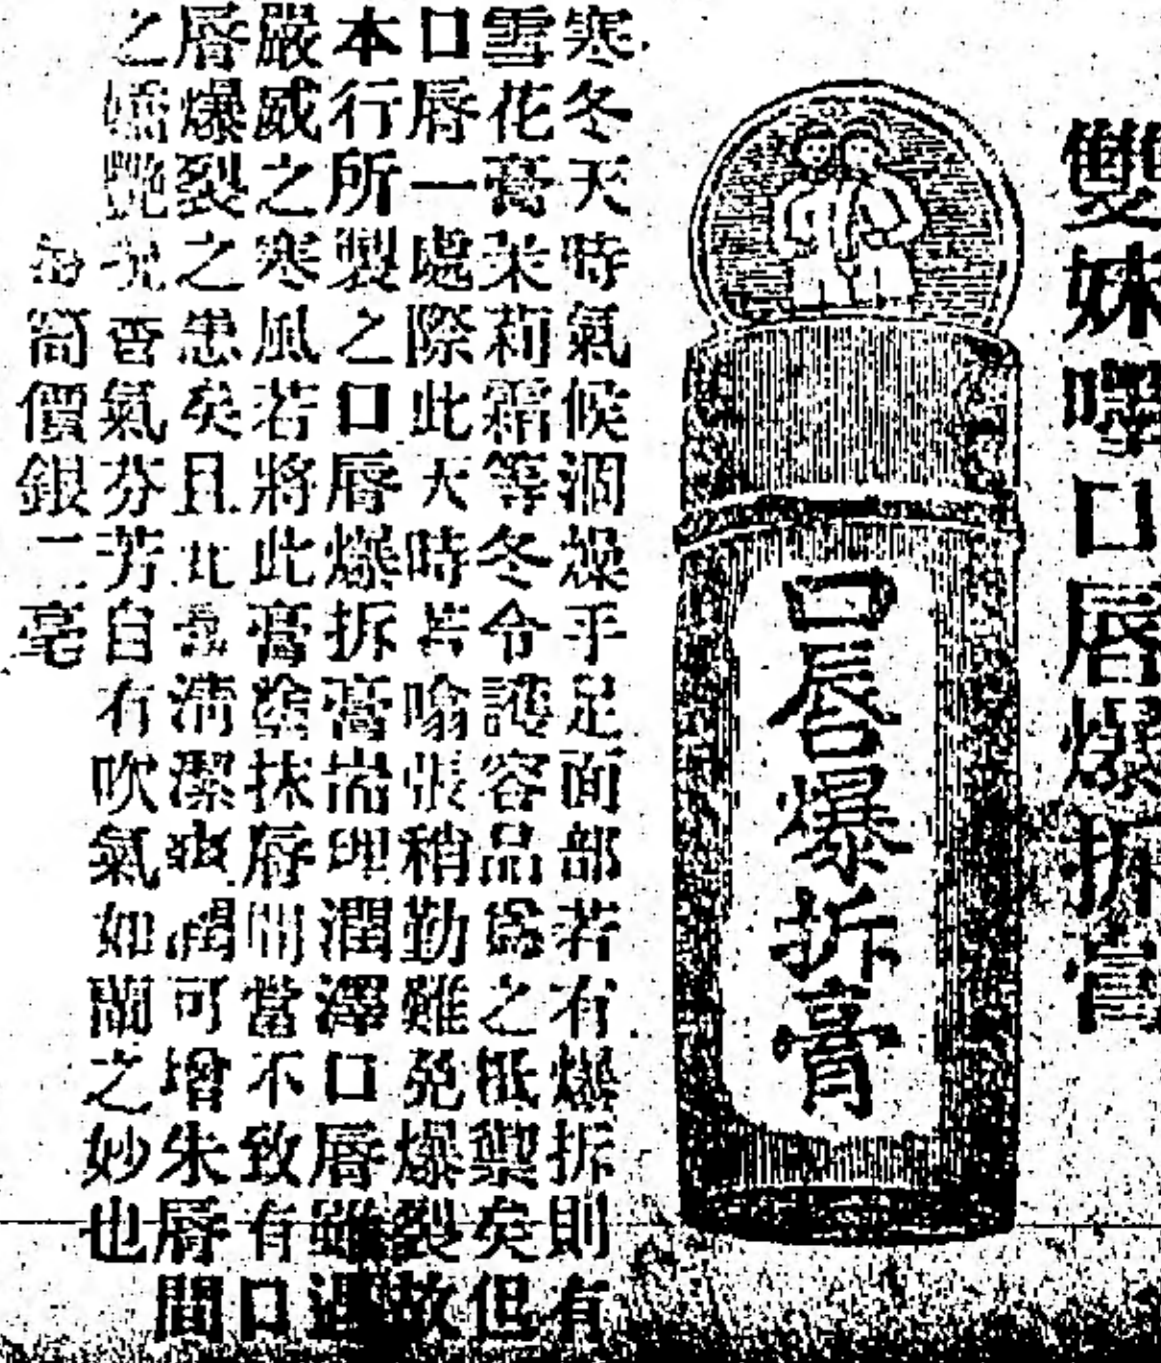 雙妹嘜口唇爆拆膏
口唇爆拆膏
寒冬天時氣候涸燥手足面部若有爆拆則有
雪花膏茉莉霜等冬令護容品爲之抵禦矣但
口唇一處際此天時若噏張稍勤難免爆裂故
本行所製之口唇爆拆膏耑理潤澤口唇雖遇
嚴威之寒風若將此膏塗抹唇間當不致有口
唇爆裂之患矣且此膏清潔爽 可增朱唇間
之嬌艷 香氣芬芳自有吹氣如蘭之妙也
每筒價銀二毫